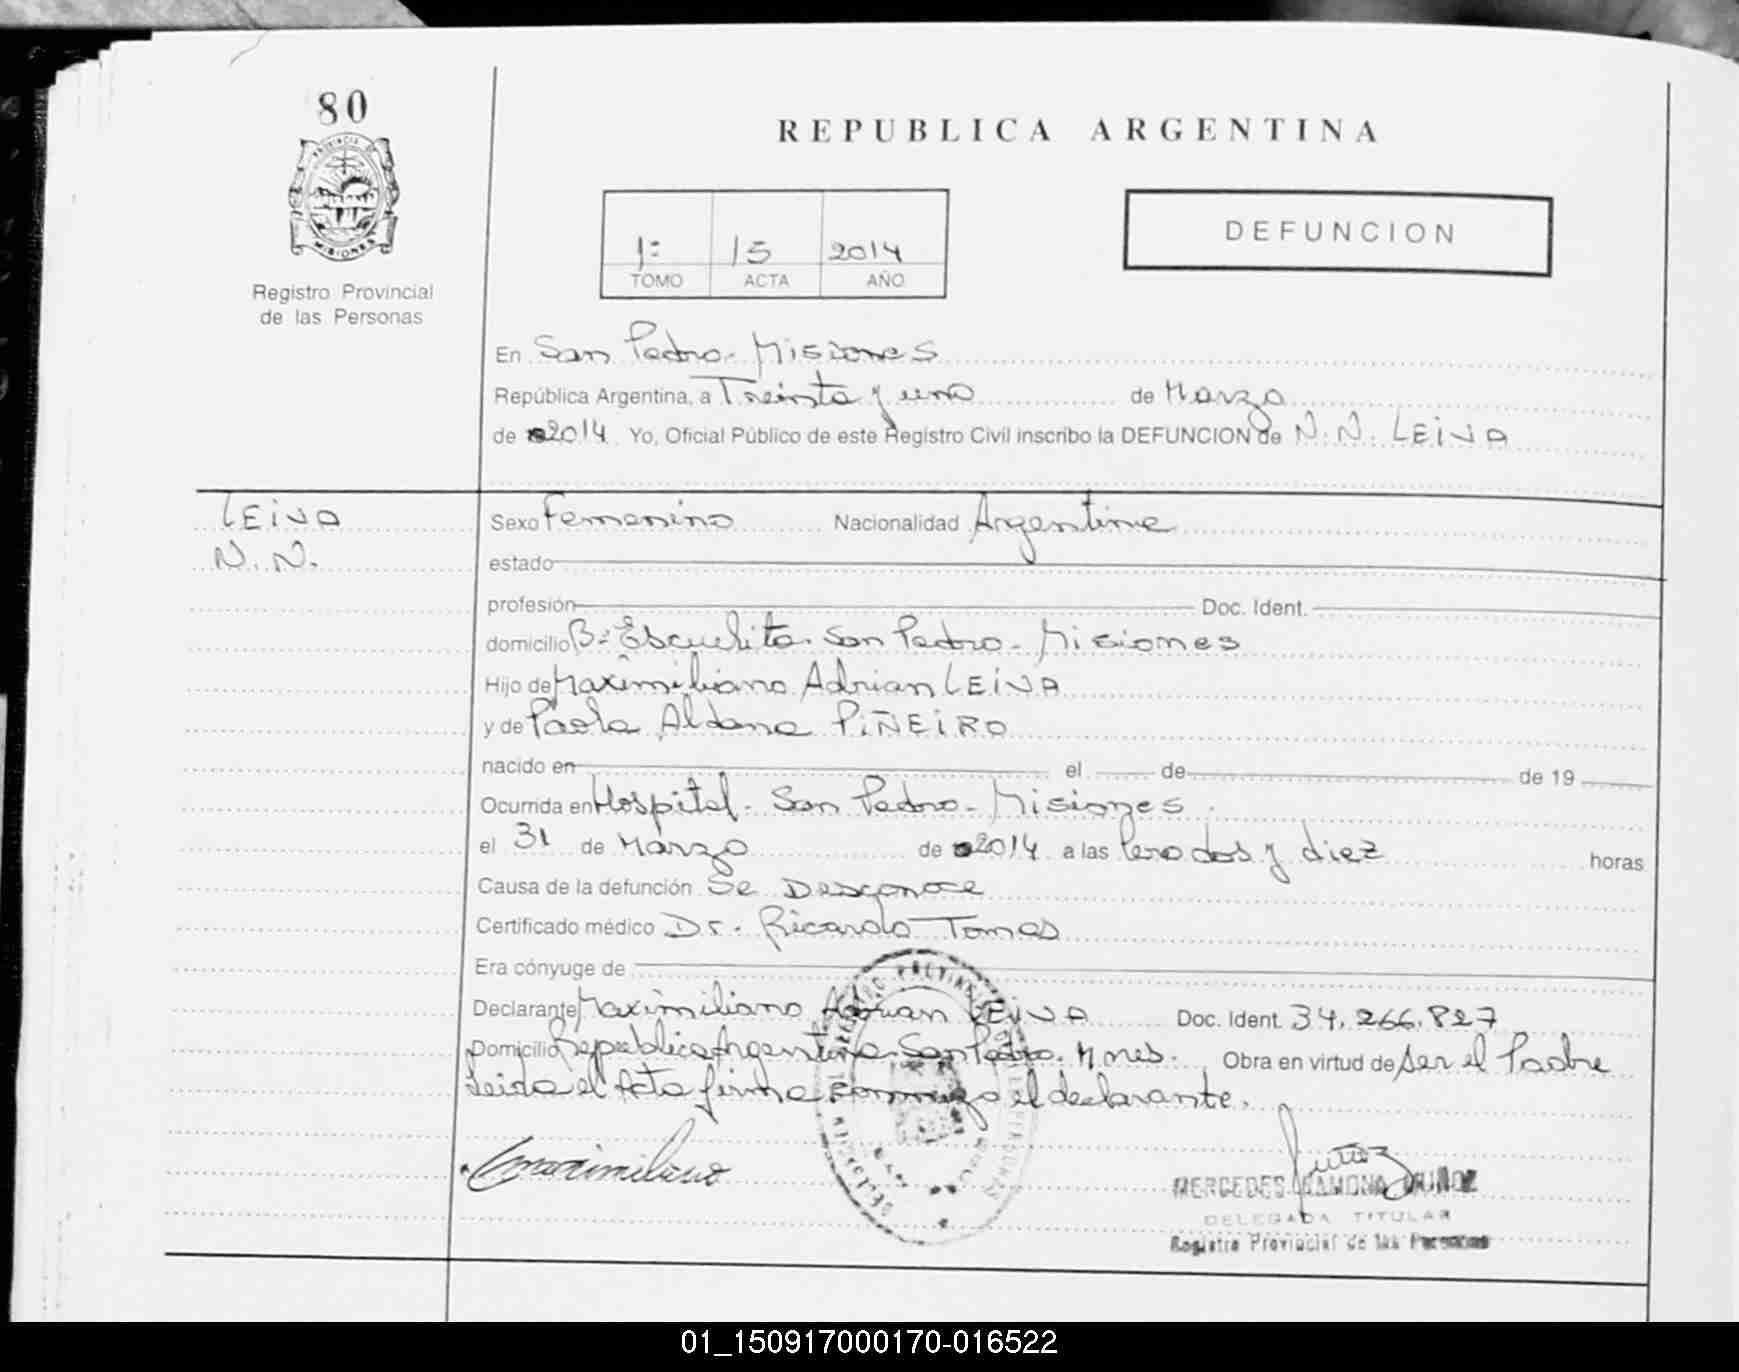 80
REPUBLICA ARGENTINA
PROVINCIA DE
MISIONES
Registro Provincial
de las Personas
1º 15 2014
TOMO ACTA AÑO
DEFUNCION
En San Pedro - Misiones
República Argentina, a Treinta y uno de Marzo
de 2014 Yo, Oficial Público de este Registro Civil inscribo la DEFUNCION de N. N. LEIVA
LEIVA
N. N.
Sexo Femenino Nacionalidad Argentina
estado
profesión Doc. Ident.
domicilio Bº Escuelita - San Pedro - Misiones
Hijo de Maximiliano Adrian LEIVA
y de Paola Aldana PIÑEIRO
nacido en el de de 19
Ocurrida en Hospital - San Pedro - Misiones
el 31 de Marzo de 2014 a las Cero dos y diez horas
Causa de la defunción Se Desconoce
Certificado médico Dr. Ricardo Tomas
Era cónyuge de
Declarante Maximiliano Adrian LEIVA Doc. Ident. 34.266.827
Domicilio Republica Argentina - San Pedro - Mnes. Obra en virtud de ser el Padre
Leida el Acta firma conmigo el declarante.
maximiliano
MERCEDES RAMONA MUÑOZ
DELEGADA TITULAR
Registro Provincial de las Personas
01_150917000170-016522